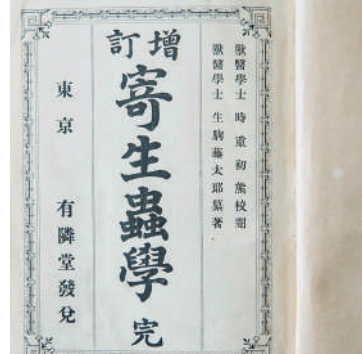 獸醫學士 時重初熊校閲
獸醫學士 生駒藤太郎纂著
増訂
寄生蟲學 完
東京 有隣堂發兌